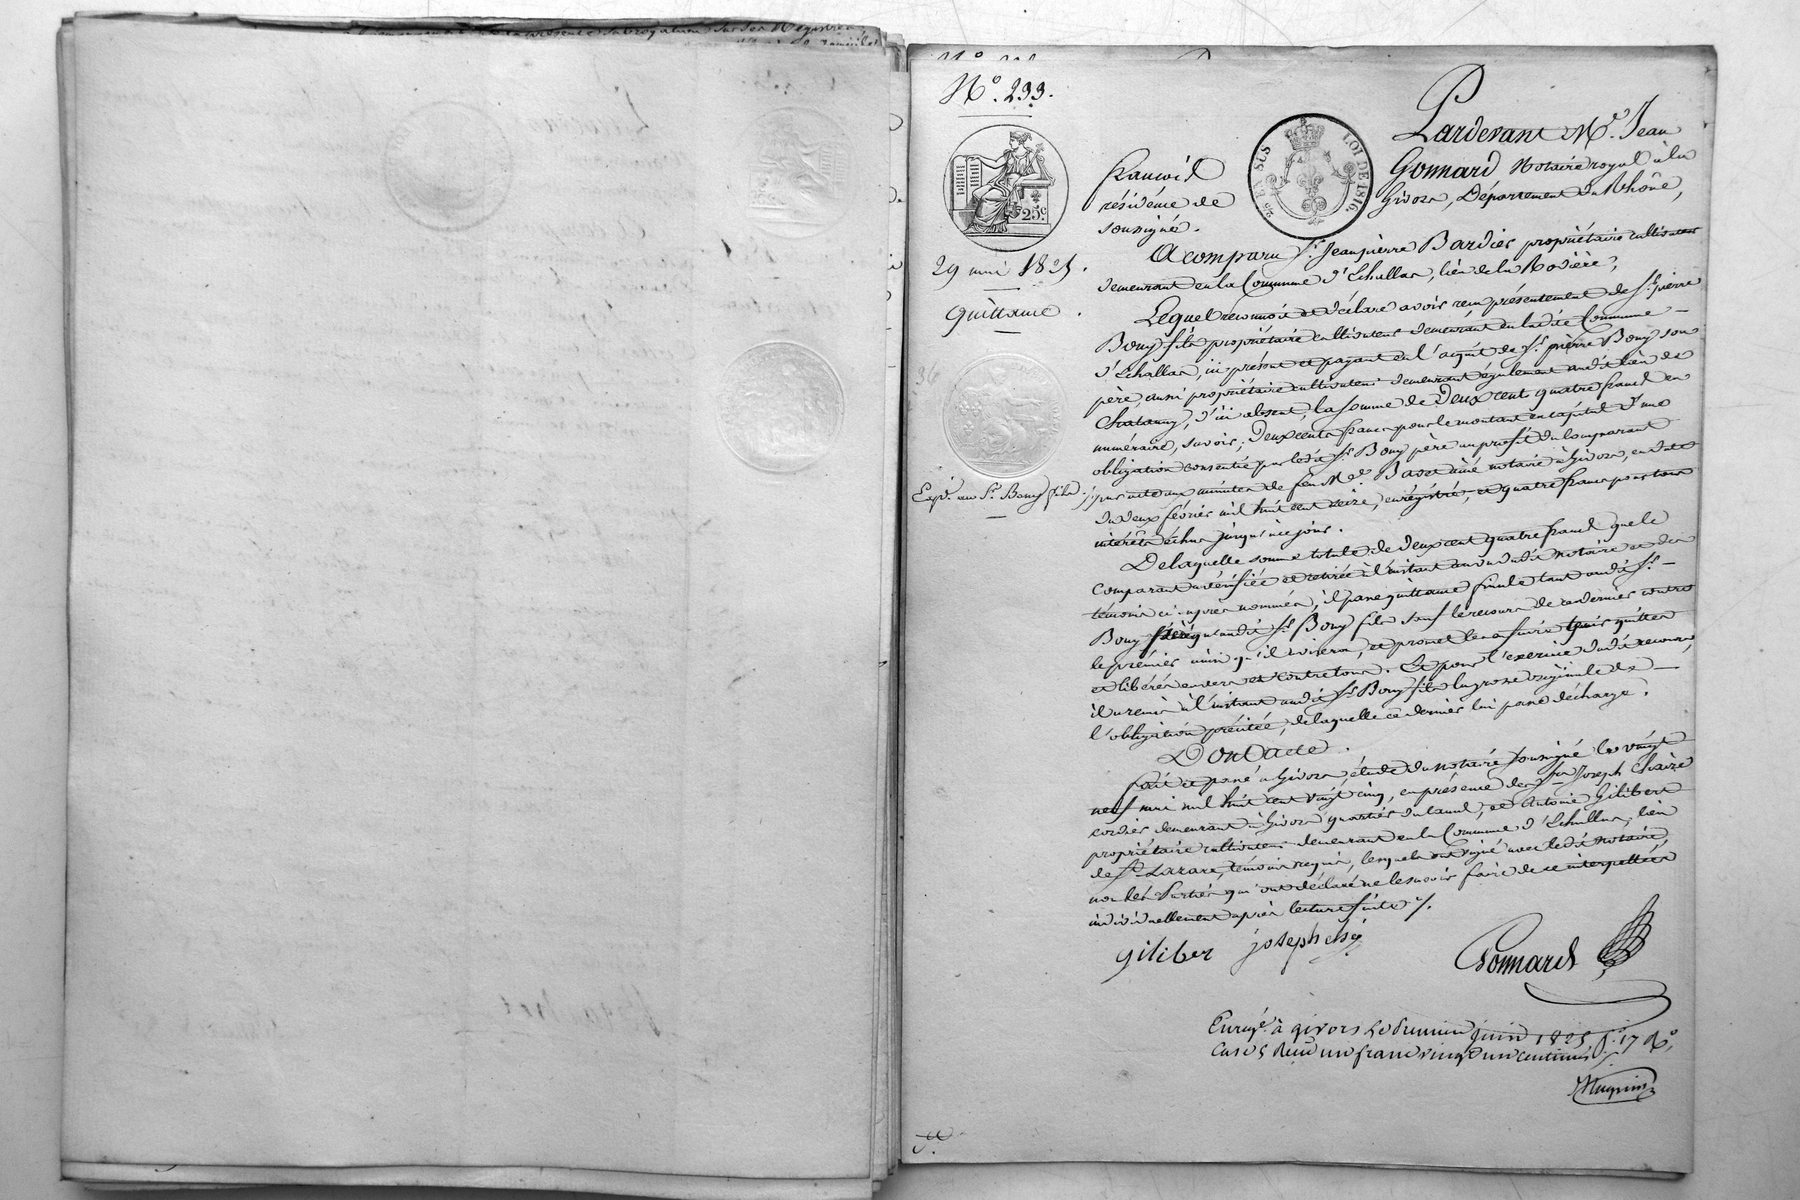 N.º 233.
Pardevant Mᵉ. Jean
François Gonnard Notaire royal à la
résidence de Givors, Département du Rhône,
soussigné.
EN SUS
LOI DE 1816.
25ᶜ
29 mai 1825.
Quittance.
A comparu Sʳ. Jeanpierre Bardier propriétaire cultivateur
demeurant en la Commune d'Echallas, lieu de la Rodière;
Lequel reconnoit et déclare avoir reçu présentement de Sʳ. pierre
Bony fils propriétaire cultivateur demeurant en ladite Commune
d'Echallas, ici présent et payant en l'acquit de Sʳ. pierre Bony son
père, aussi propriétaire cultivateur demeurant également audit lieu de
d'ici absent, la somme de Deux cent quatre francs en
numéraire, savoir; Deux cents francs pour le montant en capital d'une
obligation consentie par ledit Sʳ. Bony père au profit du comparant
Expᵉ. au Sʳ. Bony fils
par acte aux minutes de feu Mᵉ. ainé notaire à Givors, en date
du deux février mil huit cent seize, enrégistré, et quatre francs pour tous
intérêts échus jusqu'à ce jour.
De laquelle somme totale de Deux cent quatre francs que le
comparant a vérifiée et retirée à l'instant au vu dudit notaire et des
témoins ci-après nommés, il passe quittance finale tant audit Sʳ.
Bony père qu'audit Sʳ. Bony fils sauf le recours de ce dernier contre
le premier ainsi qu'il avisera, et promet les en faire tenir quittes
et libérés envers et contre tous. Et pour l'exercice dudit recours,
il a remis à l'instant audit Sʳ. Bony fils la grosse originale de
l'obligation précitée, de laquelle ce dernier lui passe décharge.
Dont Acte.
fait et passé à Givors, étude du notaire soussigné le vingt
neuf mai mil huit cent vingt cinq, en présence des Sʳˢ Joseph
cordier demeurant à Givors quartier du canal, et Antoine Gilibert
propriétaire cultivateur demeurant en la Commune d'Echallas, lieu
de Sᵗ. Lazare, témoins requis, lesquels ont signé avec ledit notaire,
non les Parties qui ont déclaré ne le savoir faire de ce interpellées
individuellement après lecture faite ./.
giliber joseph
Gonnard
Enregᵉ. à givors le premier juin 1825 fº. 17 Rº.
case 5 Reçu un franc vingt un centimes